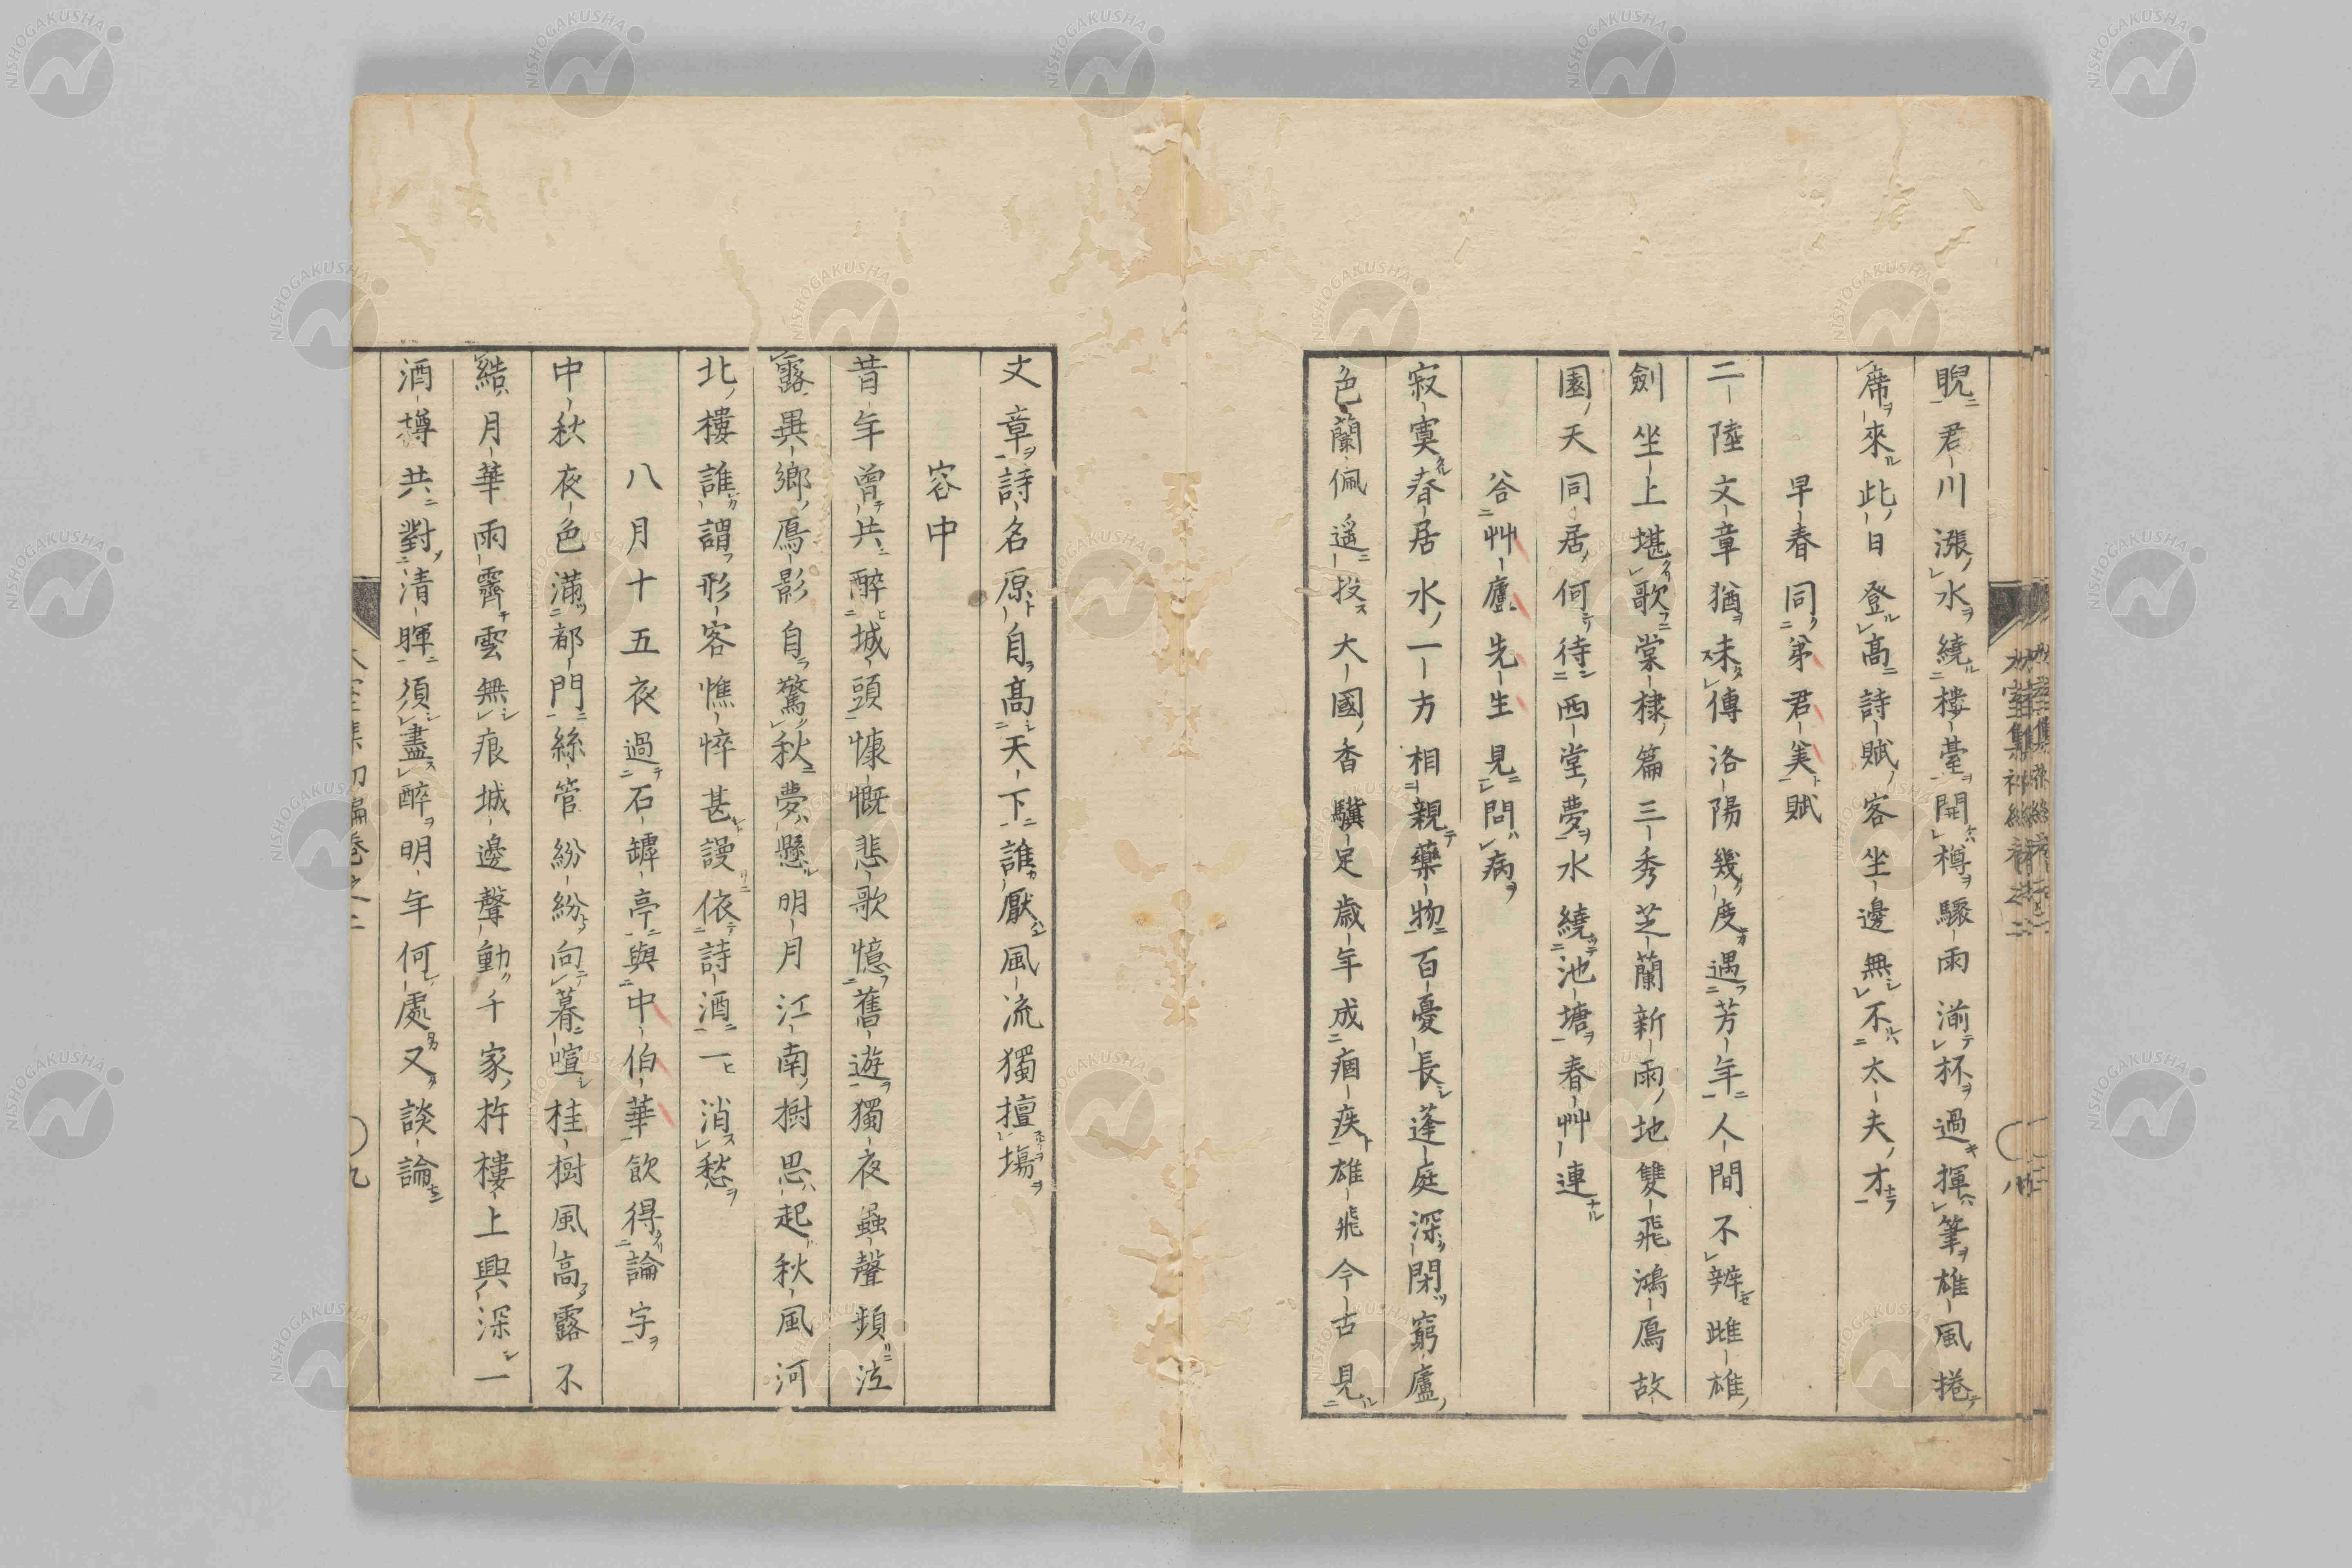 睨君川漲水繞樓臺開樽驟雨湔杯過揮筆雄風捲
席來此日登高詩賦客坐邊無不太夫才
早春同弟君美賦
二陸文章猶未傳洛陽幾度遇芳年人間不辨雌雄
劍坐上堪歌棠棣篇三秀芝蘭新雨地雙飛鴻鴈故
園天同居何待西堂夢水繞池塘春艸連
谷艸廬先生見問病
寂寞春居水一方相親藥物百憂長蓬庭深閉窮廬
色蘭佩遙投大國香驥足歲年成痼疾雄飛今古見
文章詩名原自高天下誰厭風流獨擅場
客中
昔年曾共醉城頭慷慨悲歌憶舊遊獨夜蟲聲頻泣
露異鄉鴈影自驚秋夢懸明月江南樹思起秋風河
北樓誰謂形容憔悴甚謾依詩酒一消愁
八月十五夜過石罅亭與中伯華飲得論字
中秋夜色滿都門絲管紛紛向暮喧桂樹風高露不
結月華雨霽雲無痕城邊聲動千家杵樓上興深一
酒樽共對清暉須盡醉明年何處又談論
九
NISHOGAKUSHA